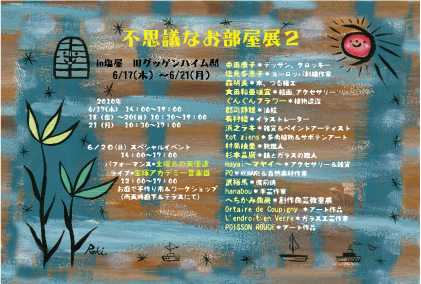 不思議なお部屋展2
in塩屋 旧グッゲンハイム邸
6/17(木) ～6/21(月)
2010年
6/17(木) 14:00～19:00
18(金) ～20(日) 10:30～19:00
21(月) 10:30～17:00
6/20(日)スペシャルイベント
14:00～17:00
パフォーマンス●土曜日の天使達
ライブ●宝塚アカデミー音楽団
12:00～17:00
お庭で手作り市&ワークショップ
(雨天時廊下&テラスにて)
中田康子●デッサン、クロッキー
塩見多恵子●ヨーロッパ刺繍作家
森明美●本、つる細工
太田和亜咲実●絵画,アクセサリー
ぐんぐんフラワー●植物造注
郡司詩麵●油絵
有村綾●イラストレーター
浜之ラキ●雑貨&ペイントアーティスト
tot ziens●多肉植物&サボテンアート
村島倫葉●靴職人
杉本昌廣●鉄とガラスの職人
mayai～マヤイ～●アクセサリー&雑貨
hanabou●手芸作家
Ortaire de Coupigny ●アート作品
L'endroit en Verre●ガラス工芸作家
POISSON ROUGE●アート作品